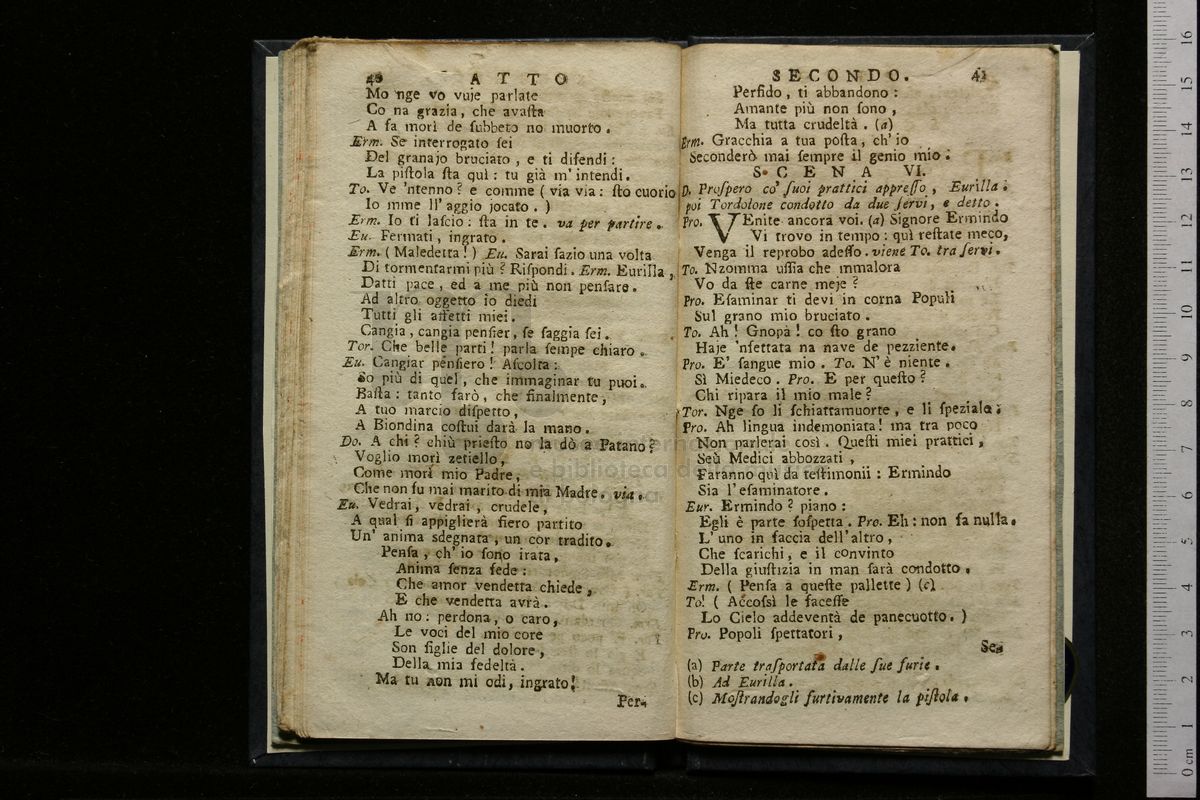 40 ATTO
Mo nge vo vuie parlate
Co na grazia, che avaſta
A fa morì de ſubbeto no muorto.
Erm. Se interrogato ſei
Del granajo bruciato, e ti difendi:
La piſtola ſta quì: tu già m'intendi.
To. Ve 'ntenno? e comme (via via: ſto cuorio
Io mme ll'aggio jocato.)
Erm. Io ti laſcio: ſta in te. va per partire.
Eu. Fermati, ingrato.
Erm. (Maledetta!) Eu. Sarai ſazio una volta
Di tormentarmi più? Riſpondi. Erm. Eurilla,
Datti pace, ed a me più non penſare.
Ad altro oggetto io diedi
Tutti gli affetti miei.
Cangia, cangia penſier, ſe ſaggia ſei.
Tor. Che belle parti! parla ſempe chiaro.
Eu. Cangiar penſiero! Aſcolta:
So più di quel, che immaginar tu puoi.
Baſta: tanto farò, che finalmente,
A tuo marcio diſpetto,
A Biondina coſtui darà la mano.
Do. A chi? chiù prieſto no la dò a Patano?
Voglio morì zetiello,
Come morì mio Padre,
Che non fu mai marito di mia Madre. via.
Eu. Vedrai, vedrai, crudele,
A qual ſi appiglierà fiero partito
Un' anima sdegnata, un cor tradito.
Penſa, ch'io ſono irata,
Anima ſenza fede:
Che amor vendetta chiede,
E che vendetta avrà.
Ah no: perdona, o caro,
Le voci del mio core
Son figlie del dolore,
Della mia fedeltà.
Ma tu non mi odi, ingrato!
Per-
SECONDO. 41
Perfido, ti abbandono:
Amante più non ſono,
Ma tutta crudeltà. (a)
Erm. Gracchia a tua poſta, ch'io
Seconderò mai ſempre il genio mio.
SCENA VI.
D. Proſpero co' ſuoi prattici appreſſo, Eurilla;
poi Tordolone condotto da due ſervi, e detto.
Pro. VEnite ancora voi. (a) Signore Ermindo
Vi trovo in tempo: quì reſtate meco,
Venga il reprobo adeſſo. viene To. tra ſervi.
To. Nzomma uſſia che mmalora
Vo da ſte carne meje?
Pro. Eſaminar ti devi in corna Populi
Sul grano mio bruciato.
To. Ah! Gnopà! co ſto grano
Haje 'nfettata na nave de pezziente.
Pro. E' ſangue mio. To. N'è niente.
Sì Miedeco. Pro. E per queſto?
Chi ripara il mio male?
Tor. Nge ſo li ſchiattamuorte, e li ſpeziale;
Pro. Ah lingua indemoniata! ma tra poco
Non parlerai così. Queſti miei prattici,
Seù Medici abbozzati,
Faranno quì da teſtimonii: Ermindo
Sia l'eſaminatore.
Eur. Ermindo? piano:
Egli è parte ſoſpetta. Pro. Eh: non fa nulla.
L'uno in faccia dell'altro,
Che ſcarichi, e il convinto
Della giuſtizia in man ſarà condotto.
Erm. (Penſa a queſte pallette) (c)
To. (Accoſsì le faceſſe
Lo Cielo addeventà de panecuotto.)
Pro. Popoli ſpettatori,
Se-
(a) Parte traſportata dalle ſue furie.
(b) Ad Eurilla.
(c) Moſtrandogli furtivamente la piſtola.
e biblioteca